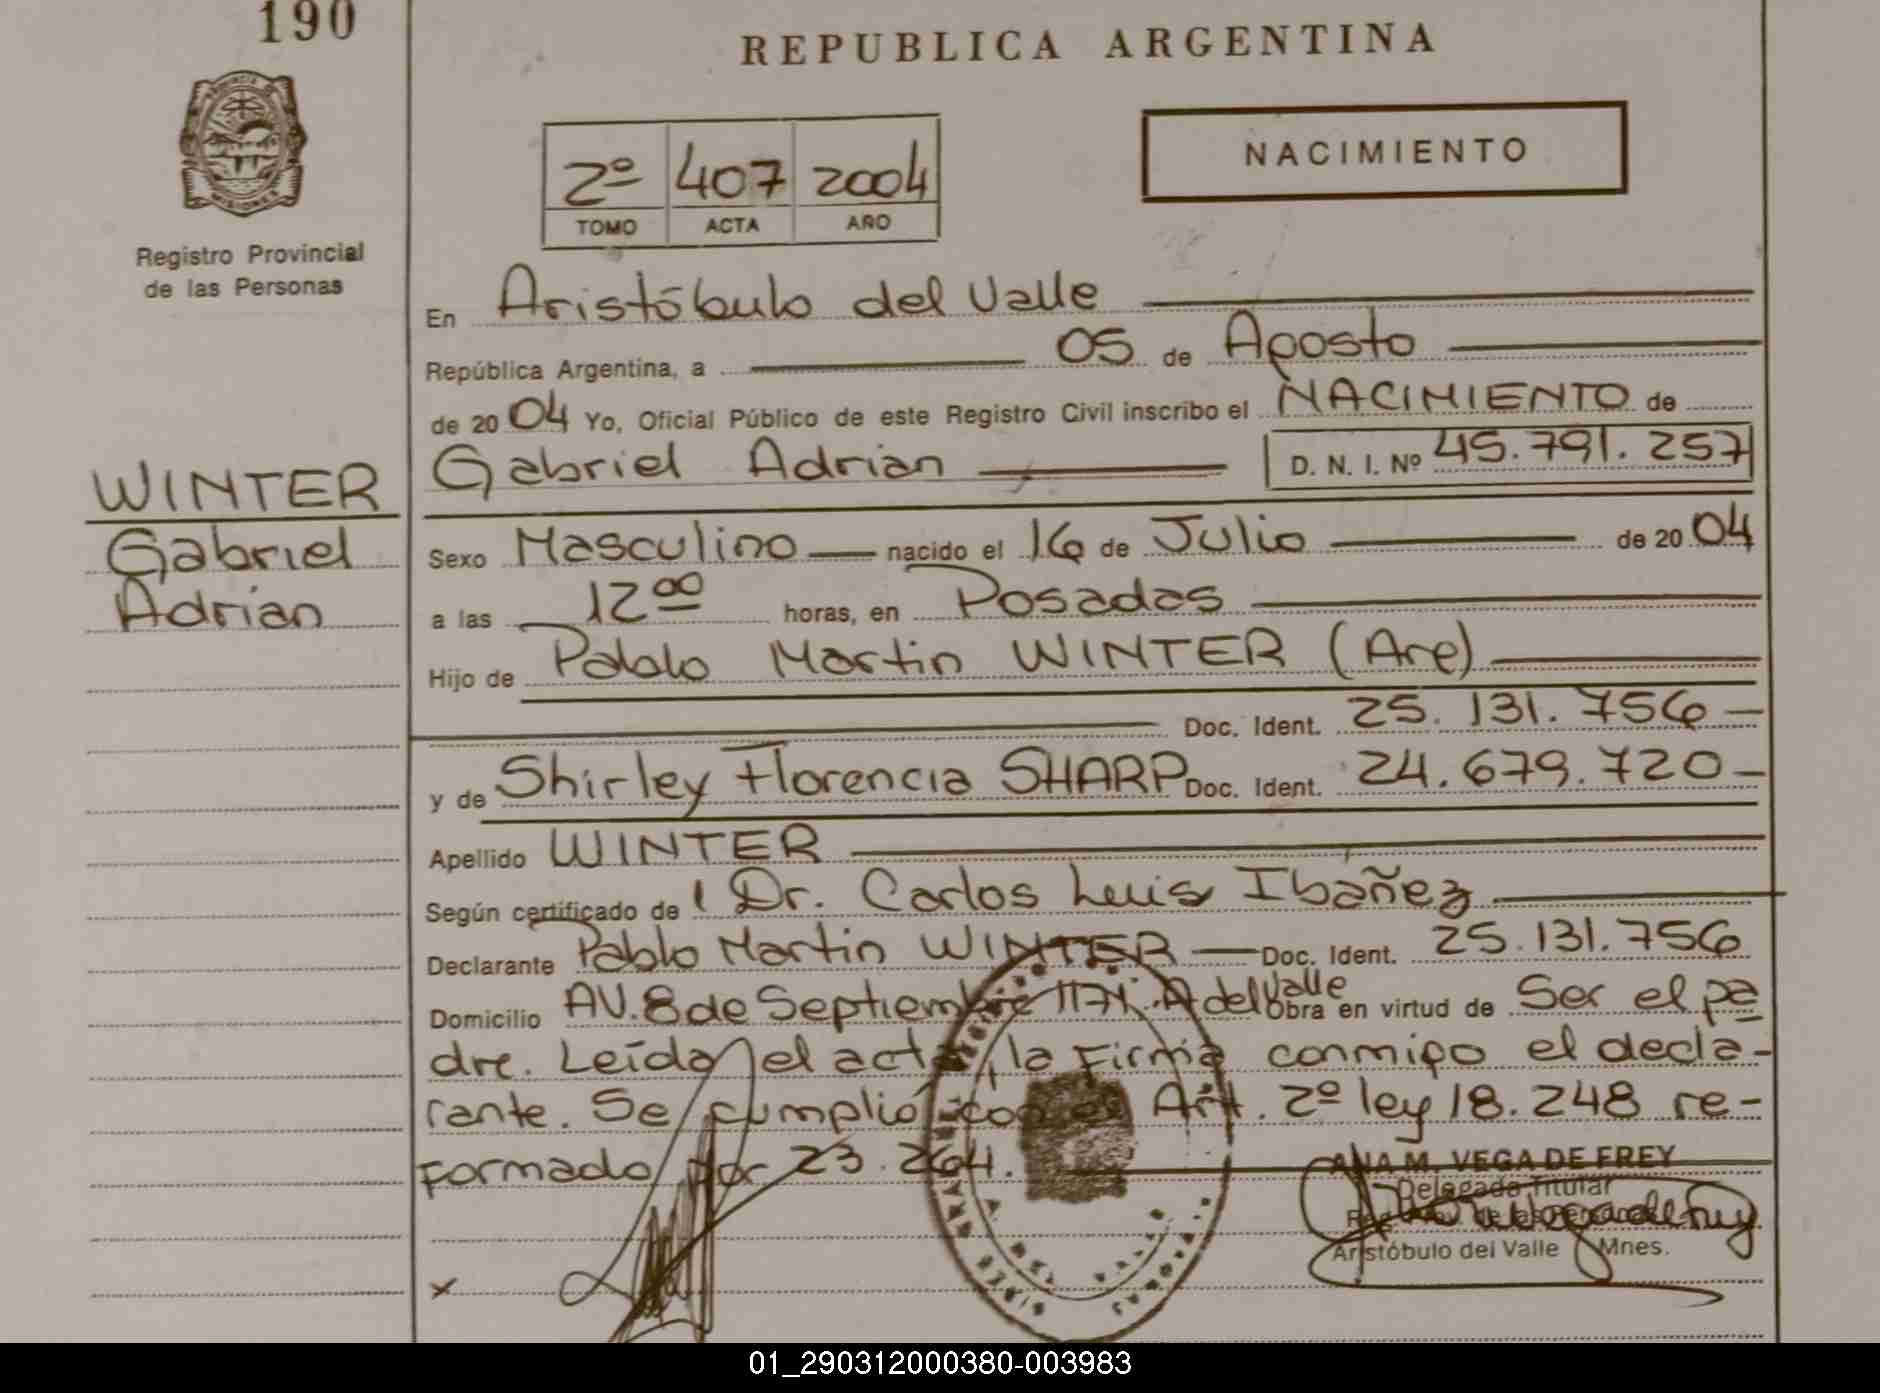 190
REPUBLICA ARGENTINA
PROVINCIA DE
MISIONES
2º 407 2004
TOMO ACTA AÑO
NACIMIENTO
Registro Provincial
de las Personas
En Aristóbulo del Valle
República Argentina, a 05 de Agosto
de 2004 Yo, Oficial Público de este Registro Civil inscribo el NACIMIENTO de
WINTER
Gabriel
Adrian
Gabriel Adrian D. N. I. Nº 45.791.257
Sexo Masculino nacido el 16 de Julio de 2004
a las 12 00 horas, en Posadas
Hijo de Pablo Martin WINTER (Arg)
Doc. Ident. 25.131.756
y de Shirley Florencia SHARP Doc. Ident. 24.679.720
Apellido WINTER
Según certificado de Dr. Carlos Luis Ibañez
Declarante Pablo Martin WINTER Doc. Ident. 25.131.756
Domicilio AV. 8 de Septiembre 1171. A del Valle Obra en virtud de Ser el pa
dre. Leída el acta, la firma conmigo el decla-
rante. Se cumplió con el Art. 2º ley 18.248 re-
formado por 23.264.
ANA M. VEGA DE FREY
Delegada Titular
Aristóbulo del Valle Mnes.
x
01_290312000380-003983